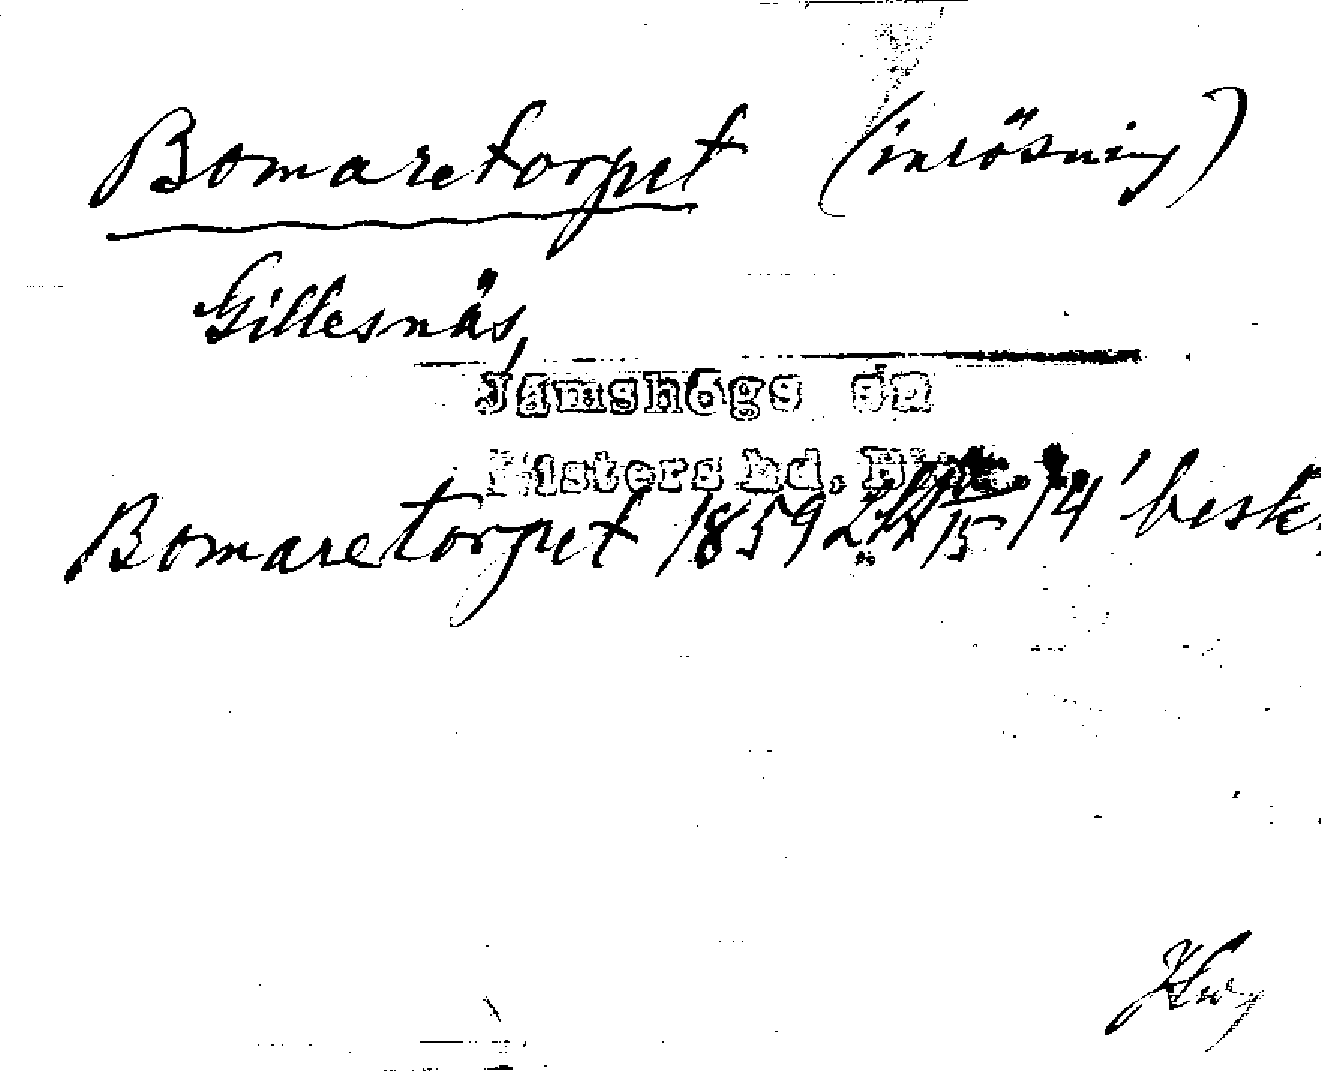 Bomaretorpet (inlösning)
Gillesnäs,
Jämshögs sn
Listers hd.
Bomaretorpet 1859 15 14 besk.